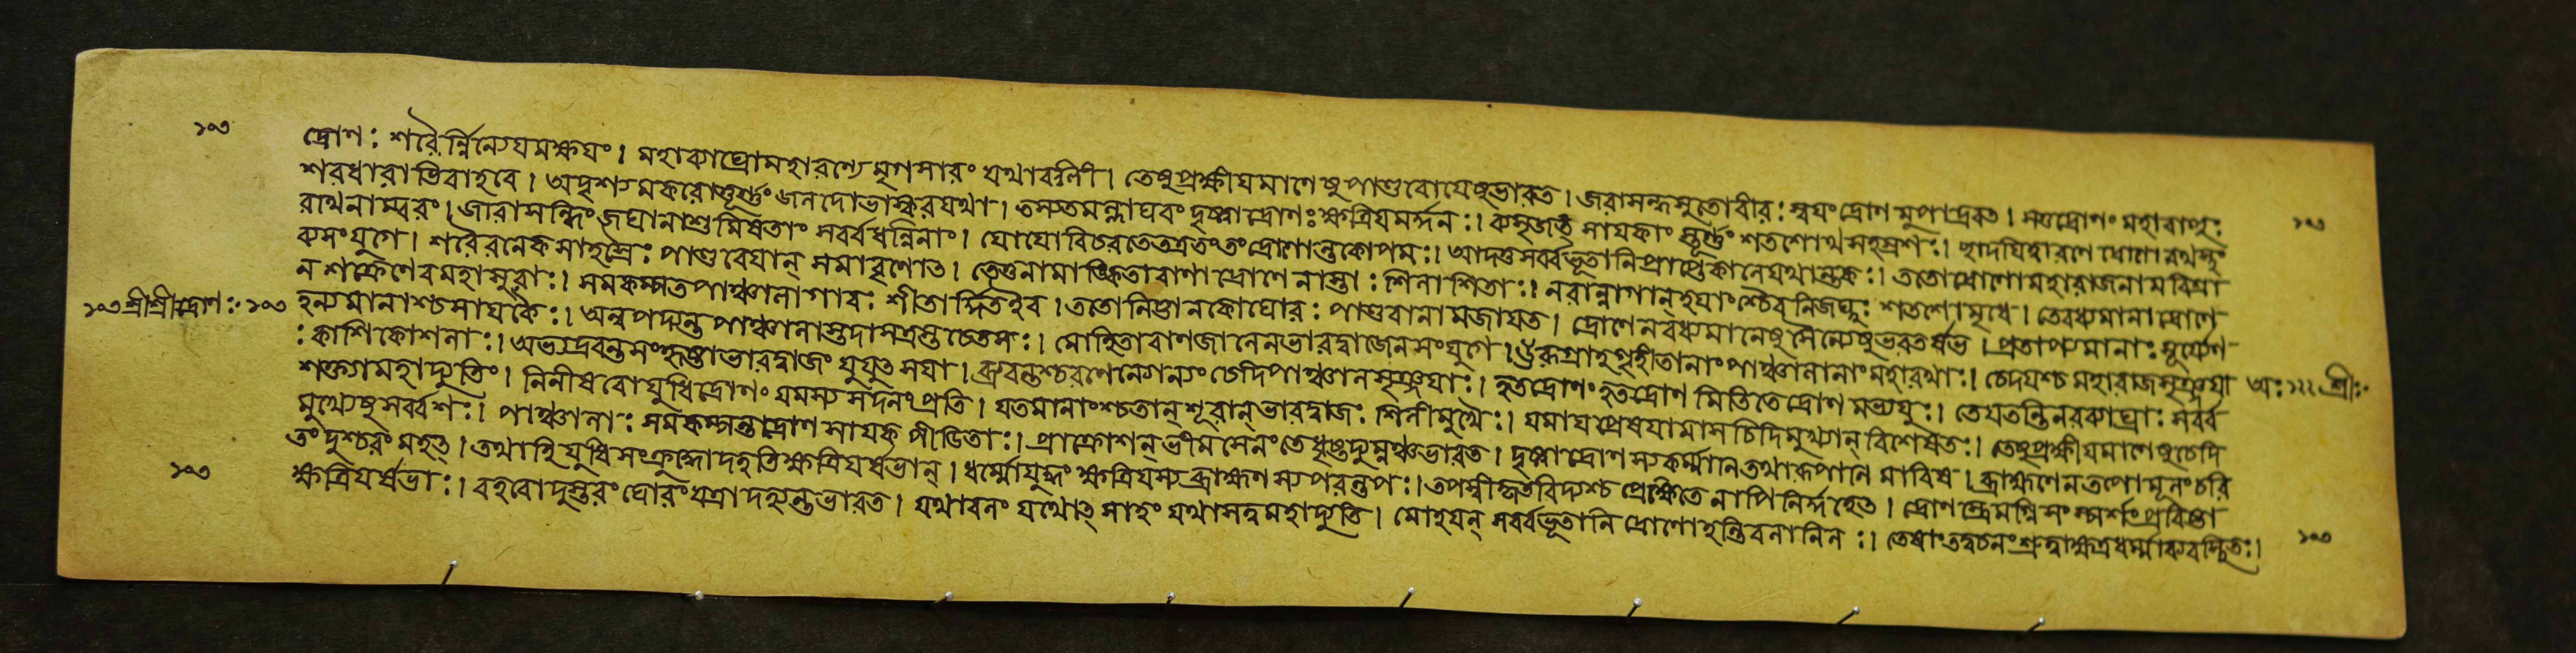 ১০৩
দ্রোণ: শরৈর্ন্নিন্যেযমক্ষযং। মহাব্যাঘ্রোমহারণ্যে মৃগসারং যথাবলী। তেষুপ্রক্ষীযমাণেষুপাণ্ডবেযেষুভারত। জরাসন্ধসুতোবীর: স্বযংদ্রোণমুপাদ্রবত। সতুদ্রোণং মহাবাহু:
শরধারাভিবাহবে। অদৃশ্যমকরোত্তূর্ণ্ণং জলদোভাস্করযথা। তস্যতল্লাঘবং দৃষ্ট্বাদ্রোণ: ক্ষত্রিযমর্দ্দন:। ব্যসৃজত সাযকাং স্তূর্ণ্ণং শতশোথসহস্রশ:। ছাদযিত্বারণে দ্রোণোরথস্থং ১০৩
রথিনাম্বরং। জারাসন্ধিং জঘানাশুমিষতাং সর্ব্বধন্বিনাং। যোযোবিচরতেতত্রতংতংদ্রোণোন্তকোপম:। আদত্তসর্ব্বভূতানিপ্রাপ্তেকালেযথান্তক:। ততোদ্রোণোমহারাজনামবিশ্রা
ব্যসংযুগে। শরৈরনেকসাহস্রৈ: পাণ্ডবেযান্ সমাবৃণোত্। তেতুনামাঙ্কিতাবাণা দ্রোণেনাস্তা: শিলাশিতা:। নরান্নাগান্হযাংশ্চৈবনিজঘ্নু: শতশোমৃধে। তেবধ্যমানাদ্রোণে
১০৩ শ্রীশ্রীদ্রোণ: ১০৩ ন শক্রেণেবমহাসুরা:। সমকম্পতপাঞ্চালাগাব: শীতার্দ্দিতাইব। ততোনিষ্টানকোঘোর: পাণ্ডবানামজাযত। দ্রোণেনবধ্যমানেষু সৈন্যেষুভরতর্ষভ। প্রতাপ্যমানা: সূর্য্যেণ
হন্যমানাশ্চসাযকৈ:। অন্বপদ্যন্তপাঞ্চালাস্তদাসন্ত্রস্তচেতস:। মোহিতাবাণজালেনভারদ্বাজেনসংযুগে। ঊরুগ্রাহগৃহীতানাংপাঞ্চালানাংমহারথা:। চেদযশ্চ মহারাজসৃঞ্জযা অ: ১২২ শ্রী:
: কাশিকোশলা:। অভ্যদ্রবন্তসংহৃষ্টাভারদ্বাজং যুযুত্সযা। ব্রুবন্তশ্চরণেন্যোন্যং চেদিপাঞ্চালসৃঞ্জযা:। হতদ্রোণং হতদ্রোণ মিতিতেদ্রোণ মভ্যযু:। তেযতন্তিনরব্যাঘ্রা: সর্ব্ব
শক্ত্যামহাদ্যুতিং। নিনীষবোযুধিদ্রোণং যমস্য সদনংপ্রতি। যতমানাংশ্চতান্ শূরান্ ভারদ্বাজ: শিলীমুখৈ:। যমাযপ্রেষযামাসচেদিমুখ্যান্ বিশেষত:। তেষুপ্রক্ষীযমাণেষুচেদি
মুখ্যেষুসর্ব্বশ:। পাঞ্চালা: সমকম্পন্তদ্রোণ সাযকপীডিতা:। প্রাক্রোশন্ ভীমসেনং তেধৃষ্টদ্যুম্নঞ্চভারত। দৃষ্ট্বাদ্রোণস্যকর্ম্মাণিতথারূপাণি মারিষ। ব্রাহ্মণেনতপোনূনংচরি
তংদুশ্চরং মহত্। তথাহিযুধিসংক্রুদ্ধোদহতিক্ষত্রিযর্ষভান্। ধর্ম্মোযুদ্ধং ক্ষত্রিযস্যব্রাহ্মণস্যপরন্তপ:। তপস্বীকৃতবিদ্যশ্চ প্রেক্ষিতেনাপিনির্দ্দহেত্। দ্রোণাস্ত্রমগ্নিসংস্পর্শংপ্রবিষ্টা
১০৩ ক্ষত্রিযর্ষভা:। বহবোদুস্তরং ঘোরংযত্রাদহ্যন্তভারত। যথাবলং যথোত্সাহং যথাসত্বমহাদ্যুতি। মোহযন্ সর্ব্বভূতানিদ্রোণোহন্তিবলানিন:। তেষাংতদ্বচনংশ্রুত্বাক্ষত্রধর্ম্মাব্যবস্থিত:। ১০৩